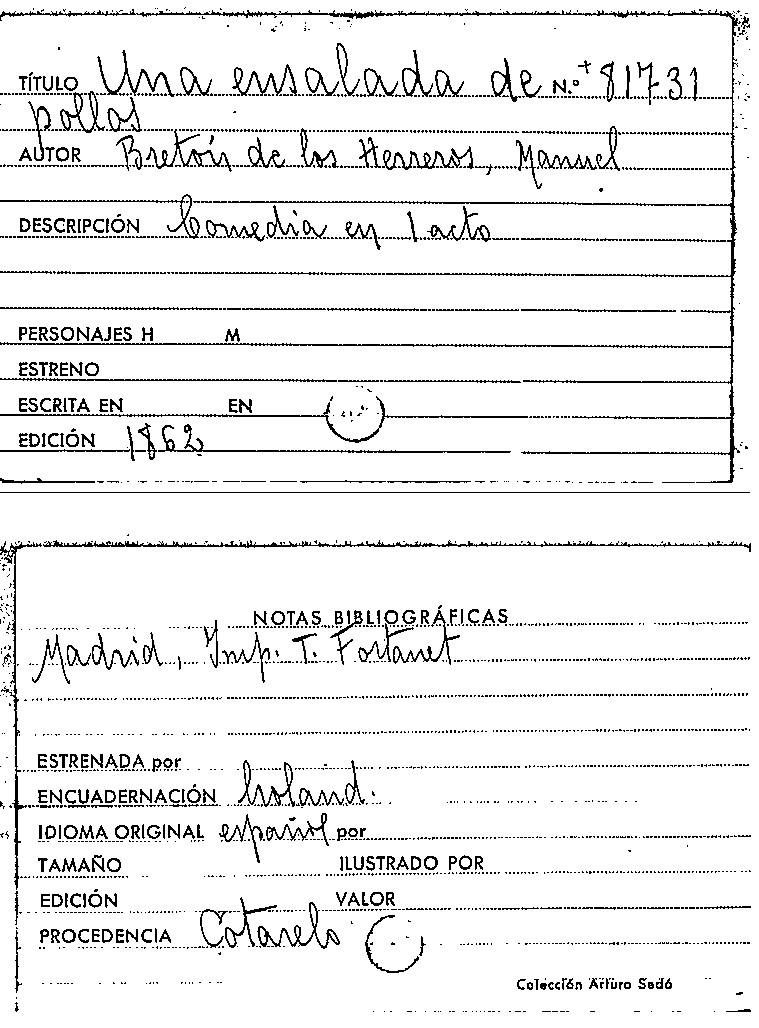 TÍTULO Una ensalada de N.º + 81731
pollos
AUTOR Bretón de los Herreros, Manuel
DESCRIPCIÓN Comedia en 1 acto
PERSONAJES H M
ESTRENO
ESCRITA EN EN
EDICIÓN 1862
NOTAS BIBLIOGRÁFICAS
Madrid, Imp. T. Fortanet
ESTRENADA por
ENCUADERNACIÓN holand.
IDIOMA ORIGINAL español por
TAMAÑO ILUSTRADO POR
EDICIÓN VALOR
PROCEDENCIA Cotarelo
Colección Arturo Sedó